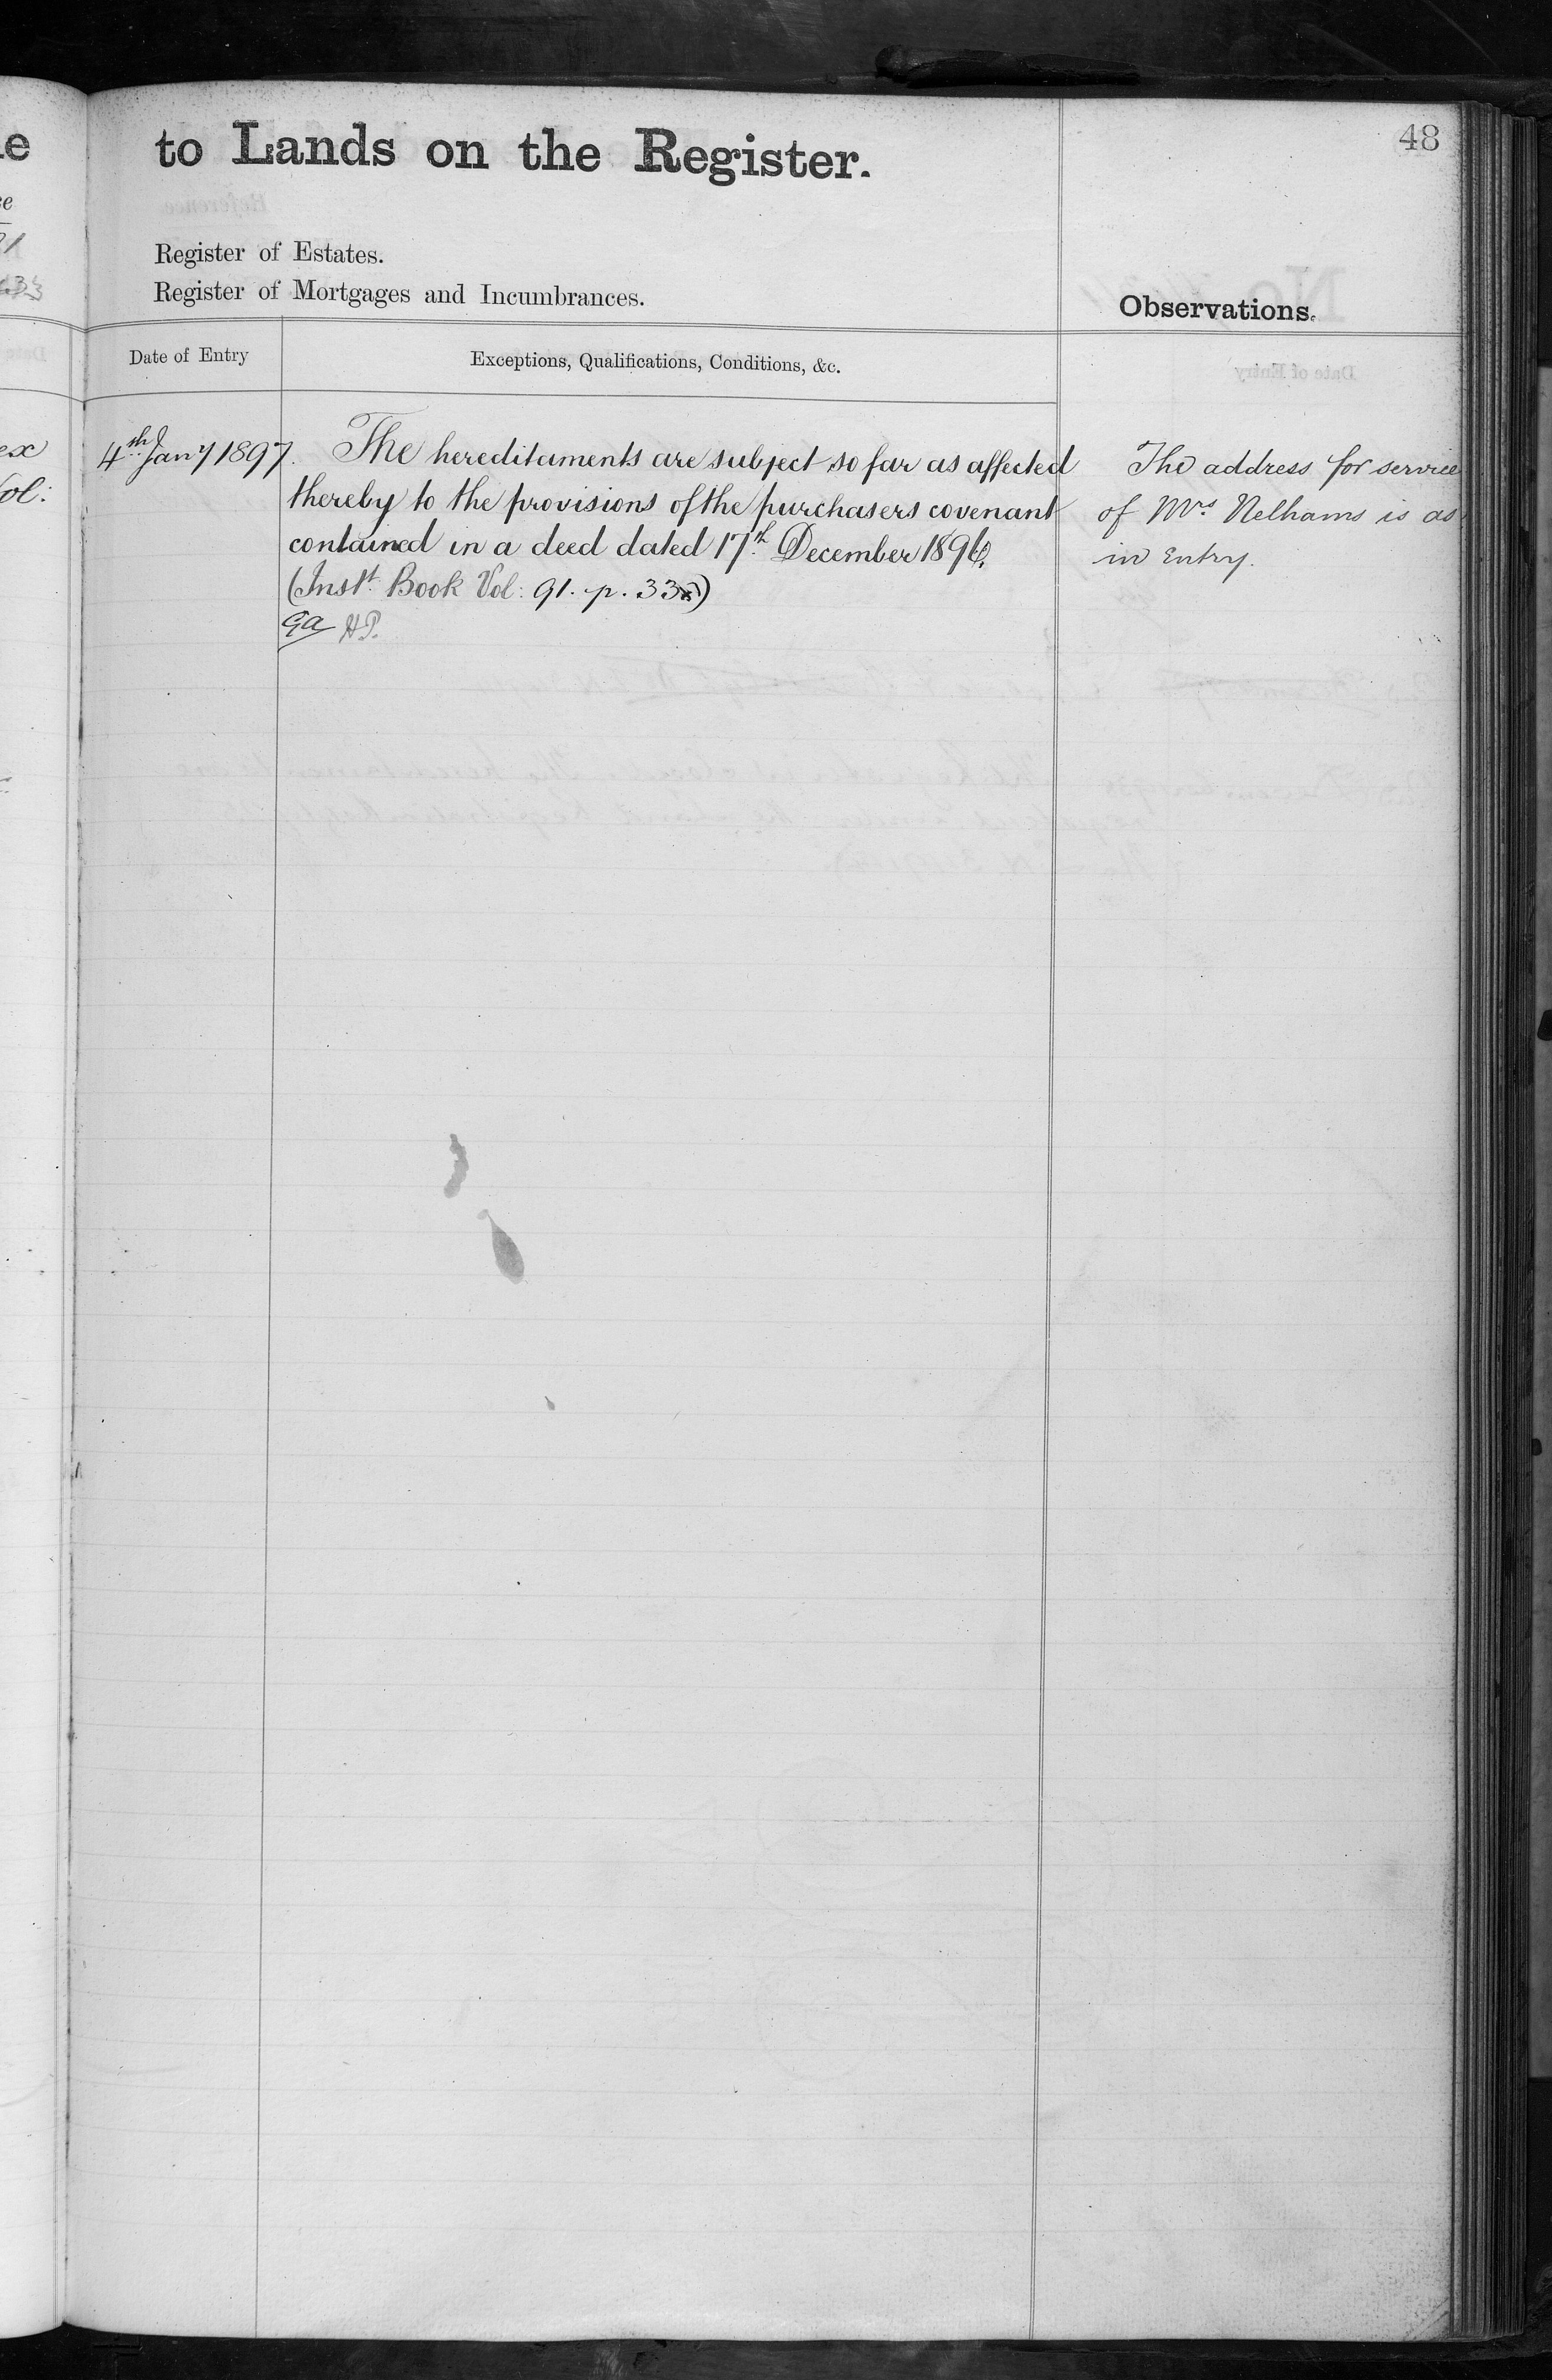 to Lands on the Register.
48
Register of Estates.
Register of Mortgages and Incumbrances.
Observations.
Date of Entry
Exceptions, Qualifications, Conditions, &c.
4th Jany 1897.
The hereditaments are subject so far as affected
thereby to the provisions of the purchasers covenant
contained in a deed dated 17th December 1896.
(Inst. Book Vol: 91. p.
GA H.P.
The address for service
of Mrs Nelhams is as
in Entry.